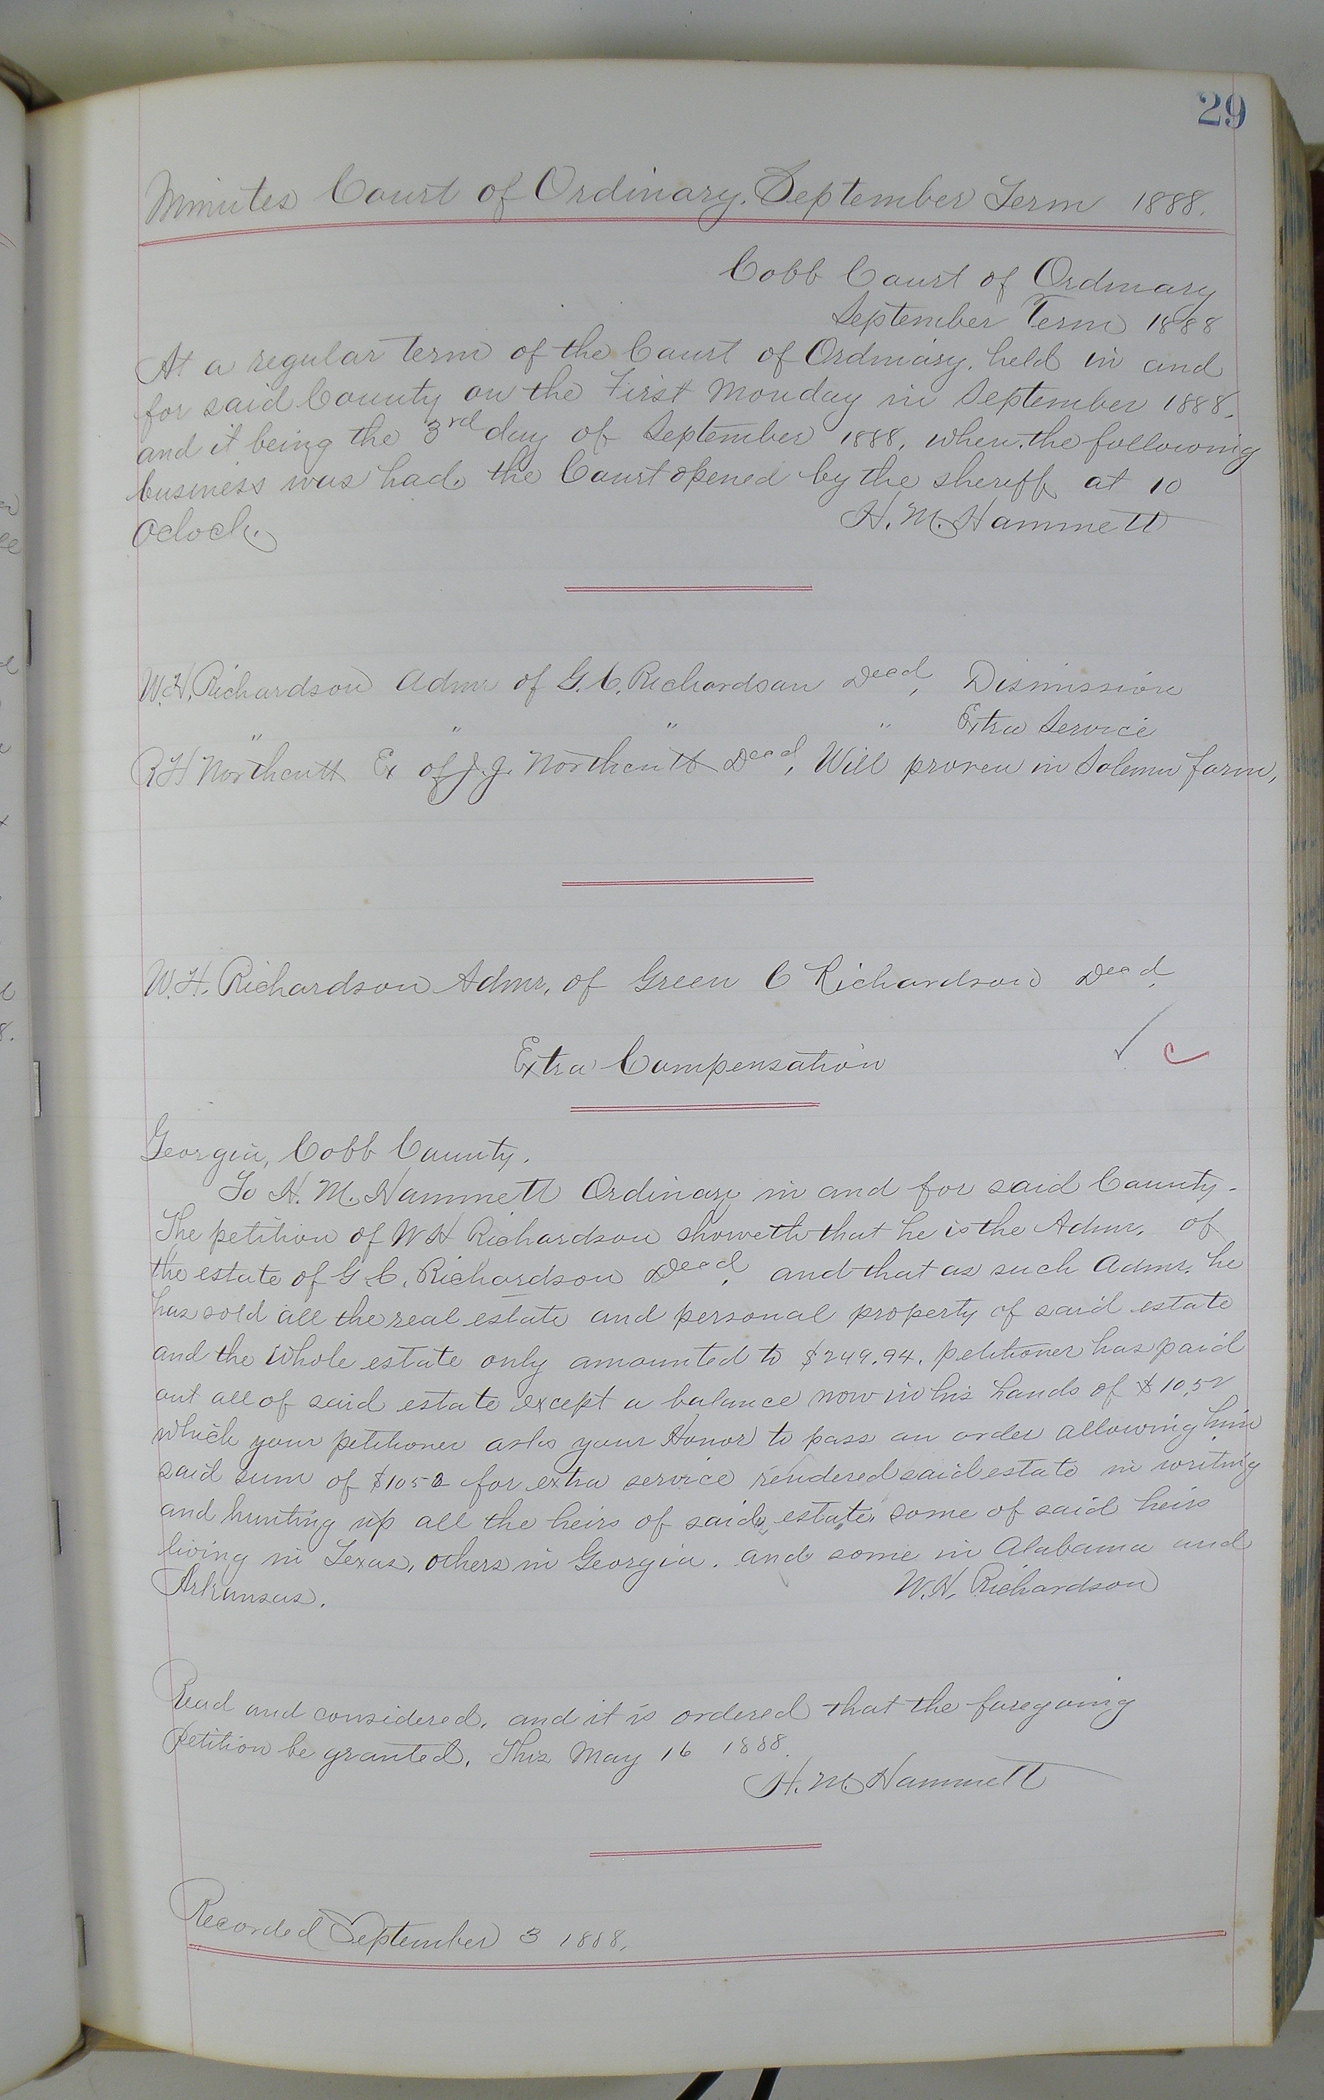 29
Minutes Court of Ordinary, September Term 1888.
Cobb Court of Ordinary
September Term 1888
At a regular term of the Court of Ordinary, held in and
for said County on the First Monday in September 1888.
and it being the 3rd day of September 1888, when the following
business was had. the Court opened by the sheriff at 10
Oclock.
H. M. Hammett
W. H. Richardson Admr of G. C. Richardson Decd, Dismission
" " " " Extra Service
R H Northcutt Ex of J. J. Northcutt Decd, Will proven in Solemn form,
W. H. Richardson Admr, of Green C Richardson Decd.
Extra Compensation
✓ c
Georgia, Cobb County.
To H. M. Hammett Ordinary in and for said County.
The petition of W H Richardson showeth that he is the Admr. of
the estate of G. C. Richardson Decd, and that as such Admr. he
has sold all the real estate and personal property of said estate
and the whole estate only amounted to $249.94. petitioner has paid
out all of said estate except a balance now in his hands of $10.52
which your petitioner asks your Honor to pass an order allowing him
said sum of $1052 for extra service rendered said estate in writing
and hunting up all the heirs of said estate. some of said heirs
living in Texas, others in Georgia. and some in Alabama and
Arkansas.
W. H. Richardson
Read and considered, and it is ordered that the foregoing
Petition be granted. This May 16 1888.
H. M. Hammett
Recorded September 3 1888.